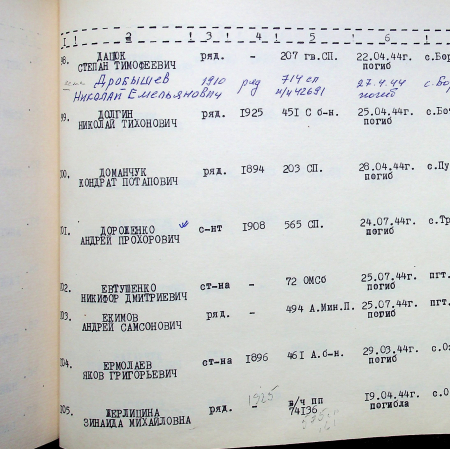 I ! 2 ! 3 ! 4 ! 5 ! 6 !
98. ДАЦЮК ряд. - 207 гв.СП. 22.04.44г. с.Бор
СТЕПАН ТИМОФЕЕВИЧ погиб
Дробышев 1910 ряд 714 сп 27.4.44 с.Бо
Николай Емельянович п/я 42691 погиб
99. ДОЛГИН ряд. 1925 451 С б-н. 25.04.44г. с.Боч
НИКОЛАЙ ТИХОНОВИЧ погиб
100. ДОМАНЧУК ряд. 1894 203 СП. 28.04.44г. с.Пу
КОНДРАТ ПОТАПОВИЧ погиб
101. ДОРОШЕНКО с-нт 1908 565 СП. 24.07.44г. с.Тр
АНДРЕЙ ПРОХОРОВИЧ погиб
102. ЕВТУШЕНКО ст-на - 72 ОМСб 25.07.44г. пгт.
НИКИФОР ДМИТРИЕВИЧ погиб
103. ЕКИМОВ ряд. - 494 А.Мин.П. 25.07.44г. пгт.
АНДРЕЙ САМСОНОВИЧ погиб
104. ЕРМОЛАЕВ ст-на 1896 461 А.б-н. 29.03.44г. с.О
ЯКОВ ГРИГОРЬЕВИЧ погиб
1925
105. ЖЕРЛИЦИНА ряд. - в/ч пп 19.04.44г. с.О
ЗИНАИДА МИХАЙЛОВНА 74136 погибла